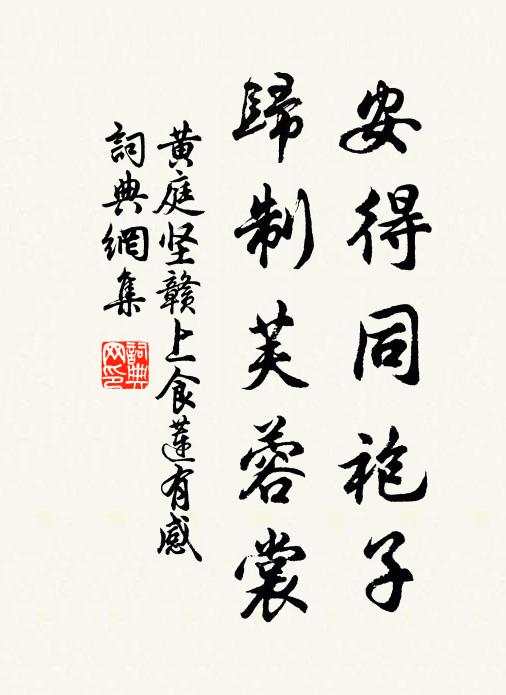 安得同袍子
歸制芙蓉裳
黄庭坚贛上食蓮有感
詞典網集
詞典网印